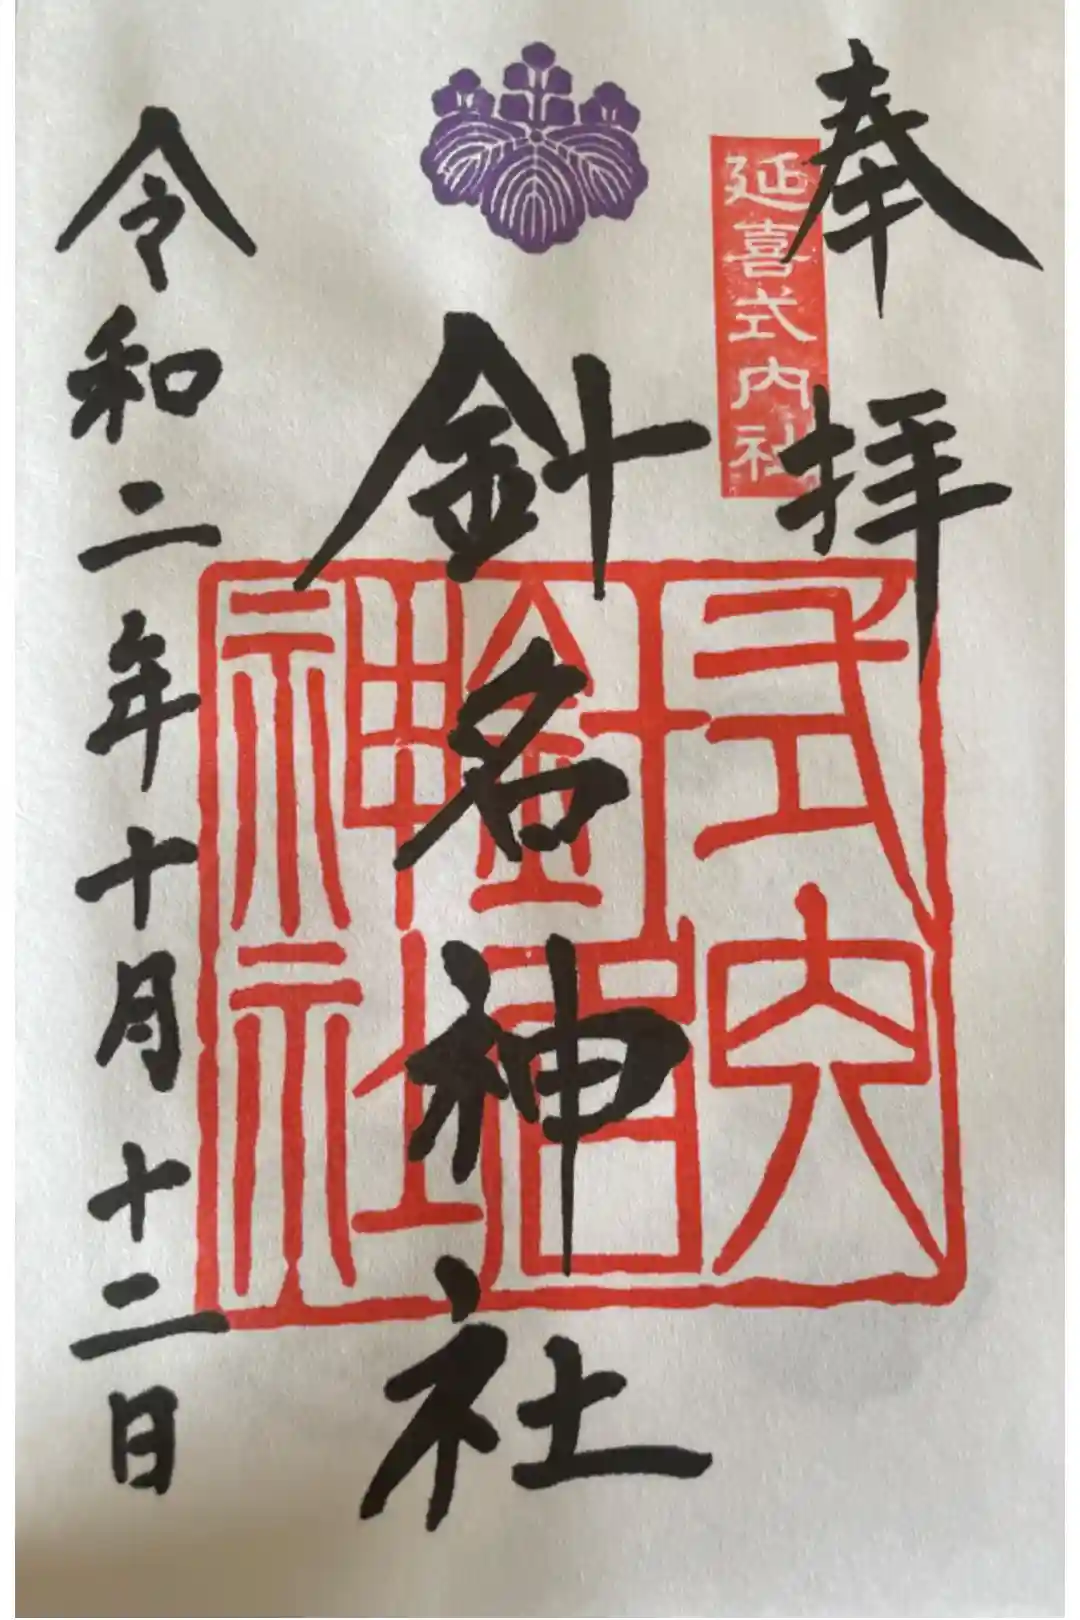 奉拝
延喜式内社
針名神社
式内
針名
神社
令和二年十月十二日